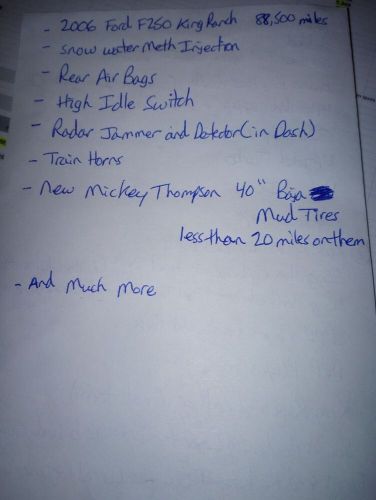 - 2006 Ford F250 King Ranch 88,500 miles
- Snow water Meth Injection
- Rear Air Bags
- High Idle Switch
- Radar Jammer and Detector (in Dash)
- Train Horns
- New Mickey Thompson 40" Baja
Mud Tires
less than 20 miles on them
- And Much More